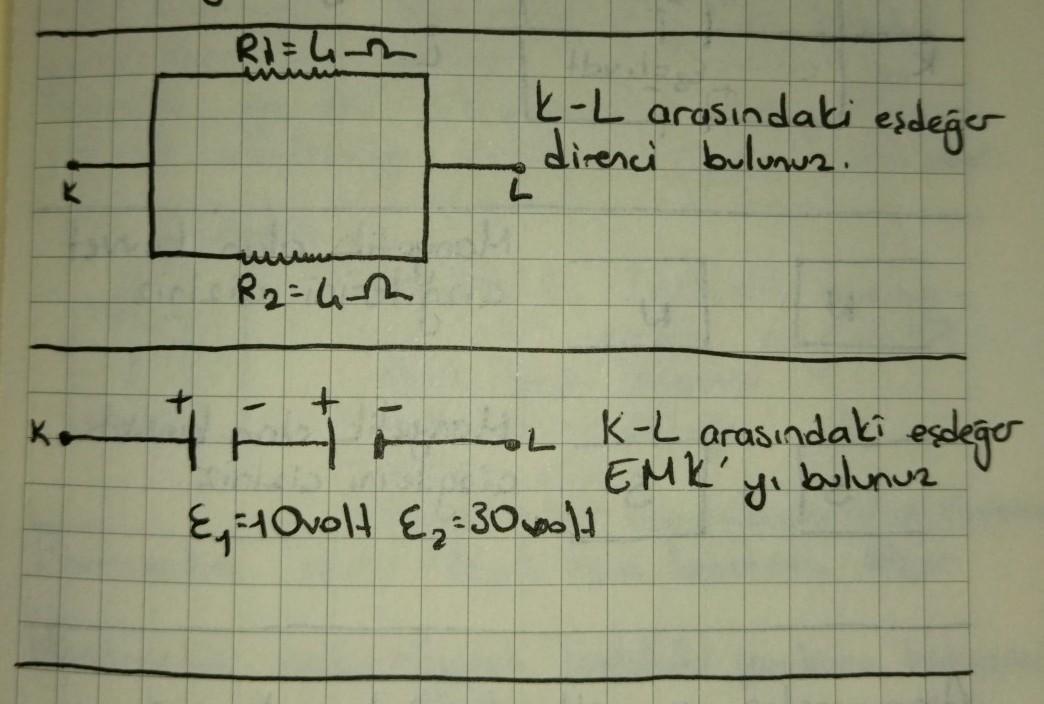 R1=4Ω
K-L arasındaki eşdeğer
direnci bulunuz.
K
L
R2=4Ω
+ - + -
K L
K-L arasındaki eşdeğer
EMK'yı bulunuz
Ɛ1=10volt Ɛ2=30volt